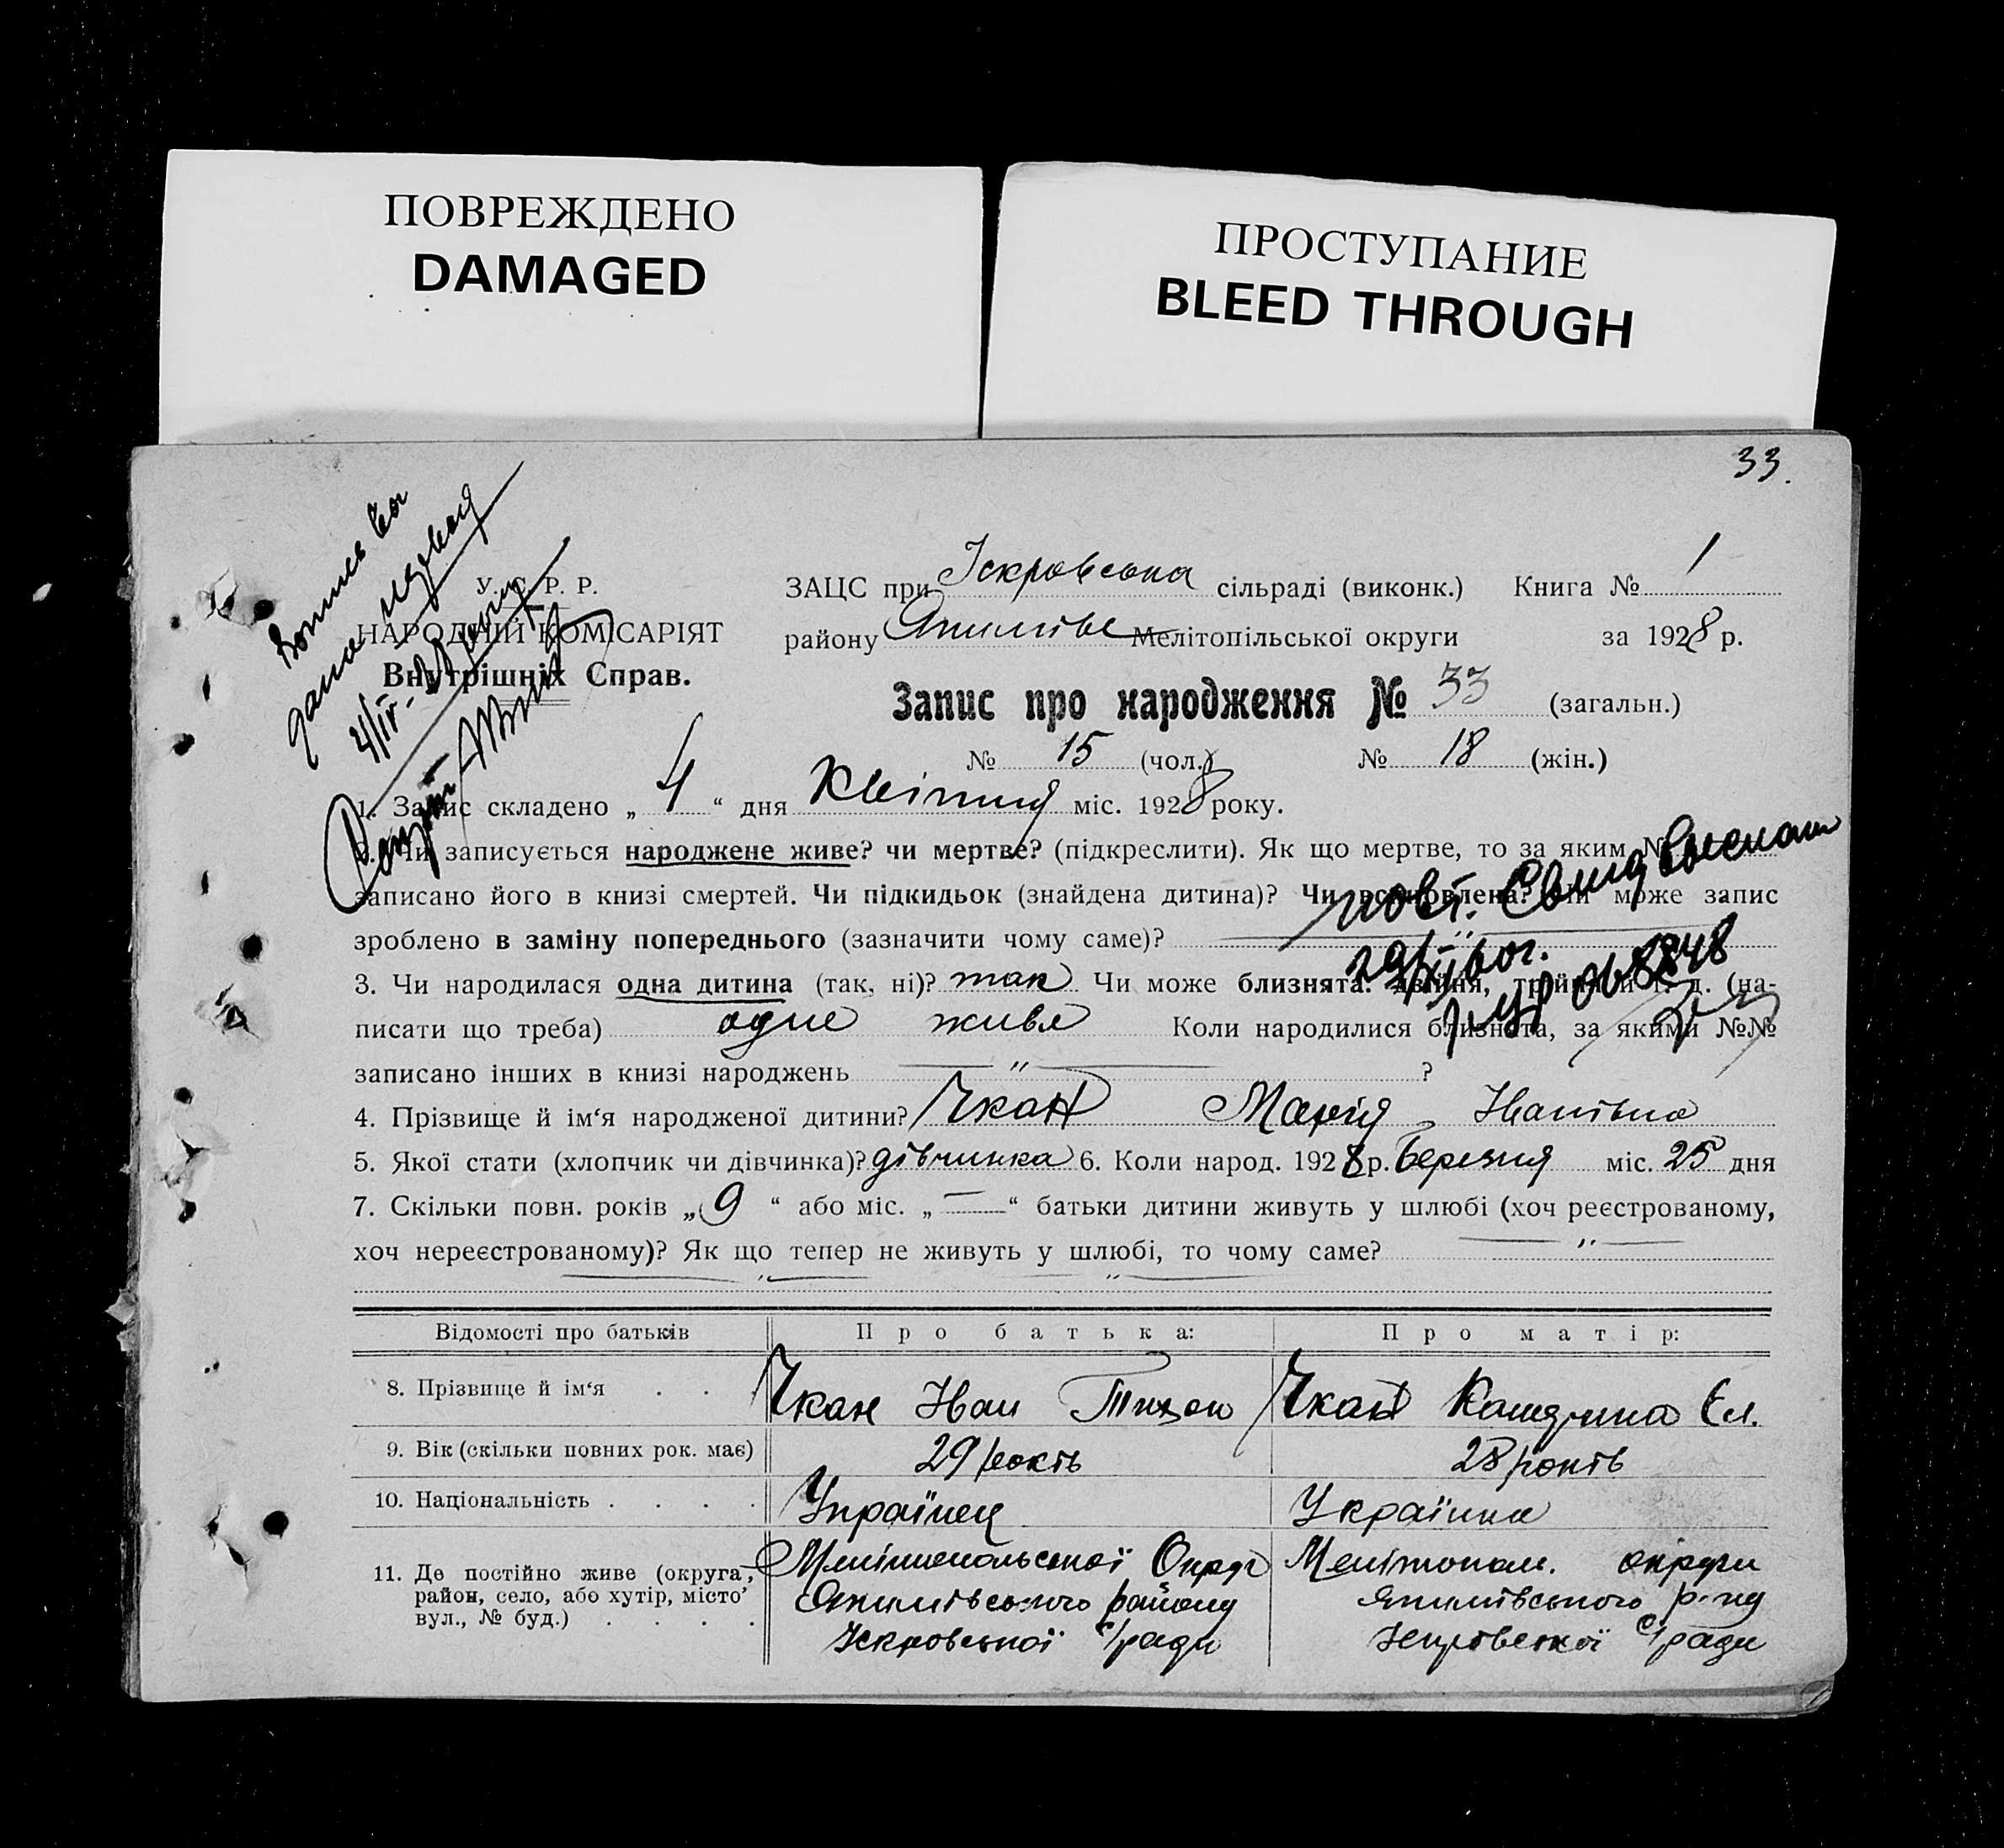 ПОВРЕЖДЕНО
DAMAGED
ПРОСТУПАНИЕ
BLEED THROUGH
33.
У. С. Р. Р.
НАРОДНІЙ КОМІСАРІЯТ
Внутрішніх Справ.
ЗАЦС при Іскровська сільраді (виконк.) Книга № 1
району Якимівс Мелітопільської округи за 1928 р.
Запис про народження № 33 (загальн.)
№ 15 (чол.) № 18 (жін.)
1. Запис складено „ 4 “ дня Квітня міс. 1928 року.
2. Чи записується народжене живе? чи мертве? (підкреслити). Як що мертве, то за яким №
записано його в книзі смертей. Чи підкидьок (знайдена дитина)? Чи встановлена? Чи може запис
зроблено в заміну попереднього (зазначити чому саме)?
повт.
3. Чи народилася одна дитина (так, ні)? так Чи може близнята: двійня, трійня й т. д. (на-
писати що треба) одне живе Коли народилися близнята, за якими №№
записано інших в книзі народжень ?
4. Прізвище й ім‘я народженої дитини? Чкан Марія Іванівна
5. Якої стати (хлопчик чи дівчинка)? дівчинка 6. Коли народ. 1928 р. березня міс. 25 дня
7. Скільки повн. років „ 9 “ або міс. „ — “ батьки дитини живуть у шлюбі (хоч реєстрованому,
хоч нереєстрованому)? Як що тепер не живуть у шлюбі, то чому саме?
Відомості про батьків Про батька: Про матір:
8. Прізвище й ім‘я . . . Чкан Іван Тихон Чкан Катерина Єл.
9. Вік (скільки повних рок. має) 29 років 28 років
10. Національність . . . . Українец Українка
11. Де постійно живе (округа, район, село, або хутір, місто вул., № буд.) . . . .
Мелітопольської Округ
Якимівського району
Іскровської с/ради
Мелітопол. округи
Якимівського р-ну
Іскровської с/ради